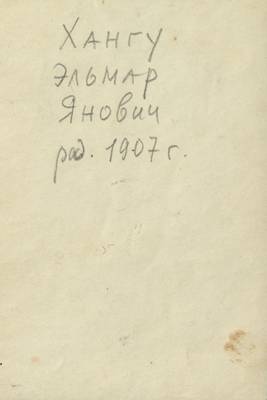 Хангу
Эльмар
Янович
род. 1907 г.